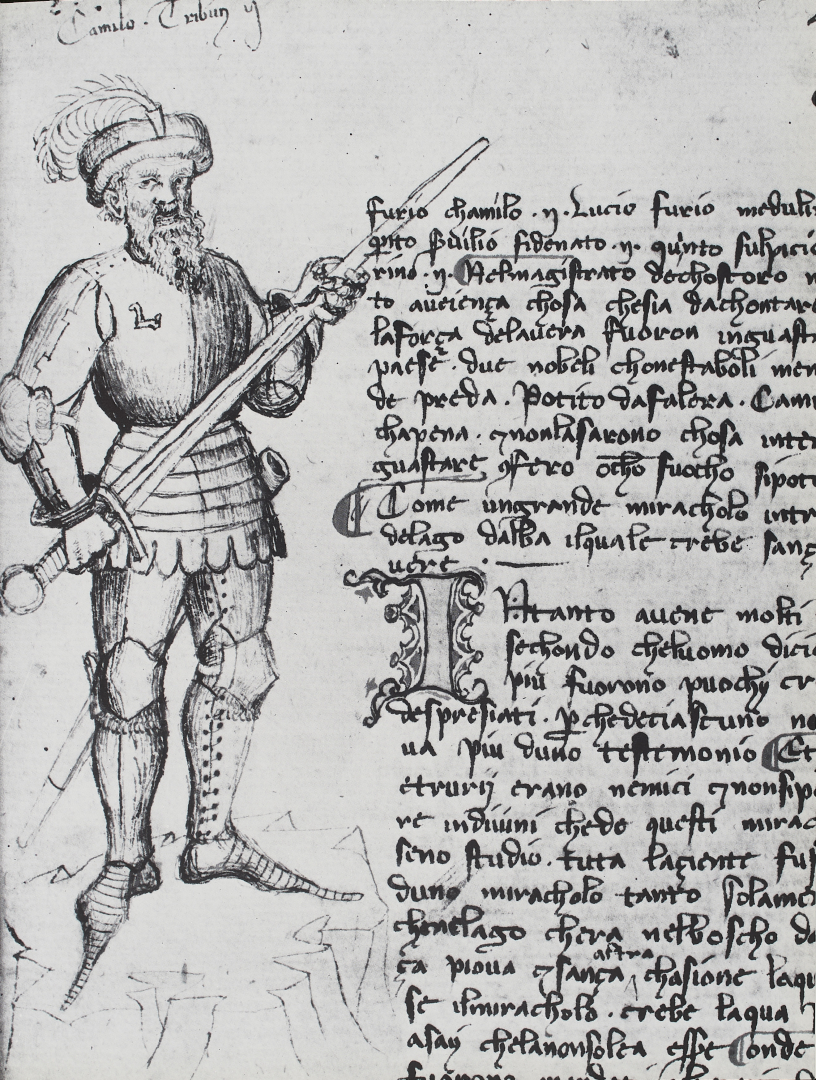 Camilo . Tribun ij
furio chamilo .ij. Lucio furio meduli
qnto svilio fidenato .ij. quinto sulpicio
rino .ij. Nelmagistrato dechostoro
to aveiença chosa chesia dachontare
laforça delavera fuoron inguasta
paese . due nobeli chonestaboli men
de preda . Potito dafalera . Cam
chapena . ⁊nonlasarono chosa inter
guastare fero ocho fuocho sipote
Come ungrande miracholo intr
delago dalba ilquale crebe sanç
uere
INtanto avene molti
sechondo cheluomo dici
piu fuorono puochi cr
despresiati . pchedeciascuno no
va piu duno testemonio Et
etrurij erano nemici ⁊nonsip
re indivini chede questi mirac
seno studio . tuta laçiente fus
duno miracholo tanto solame
chenelago chera nelboscho da
ça piova ⁊sança altra chasione laqu
se ilmiracholo . crebe laqua
asay chelanonsolea esse Conde